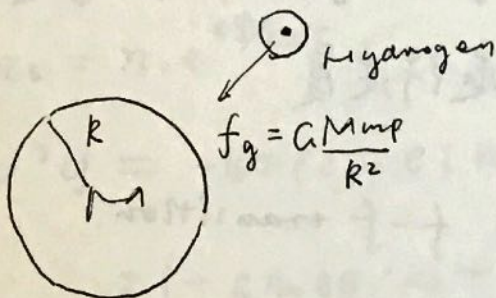 Hydrogen
R
f_g = G Mmp / R²
M